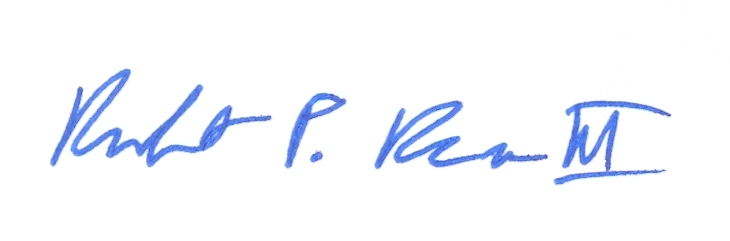 Robert P. III